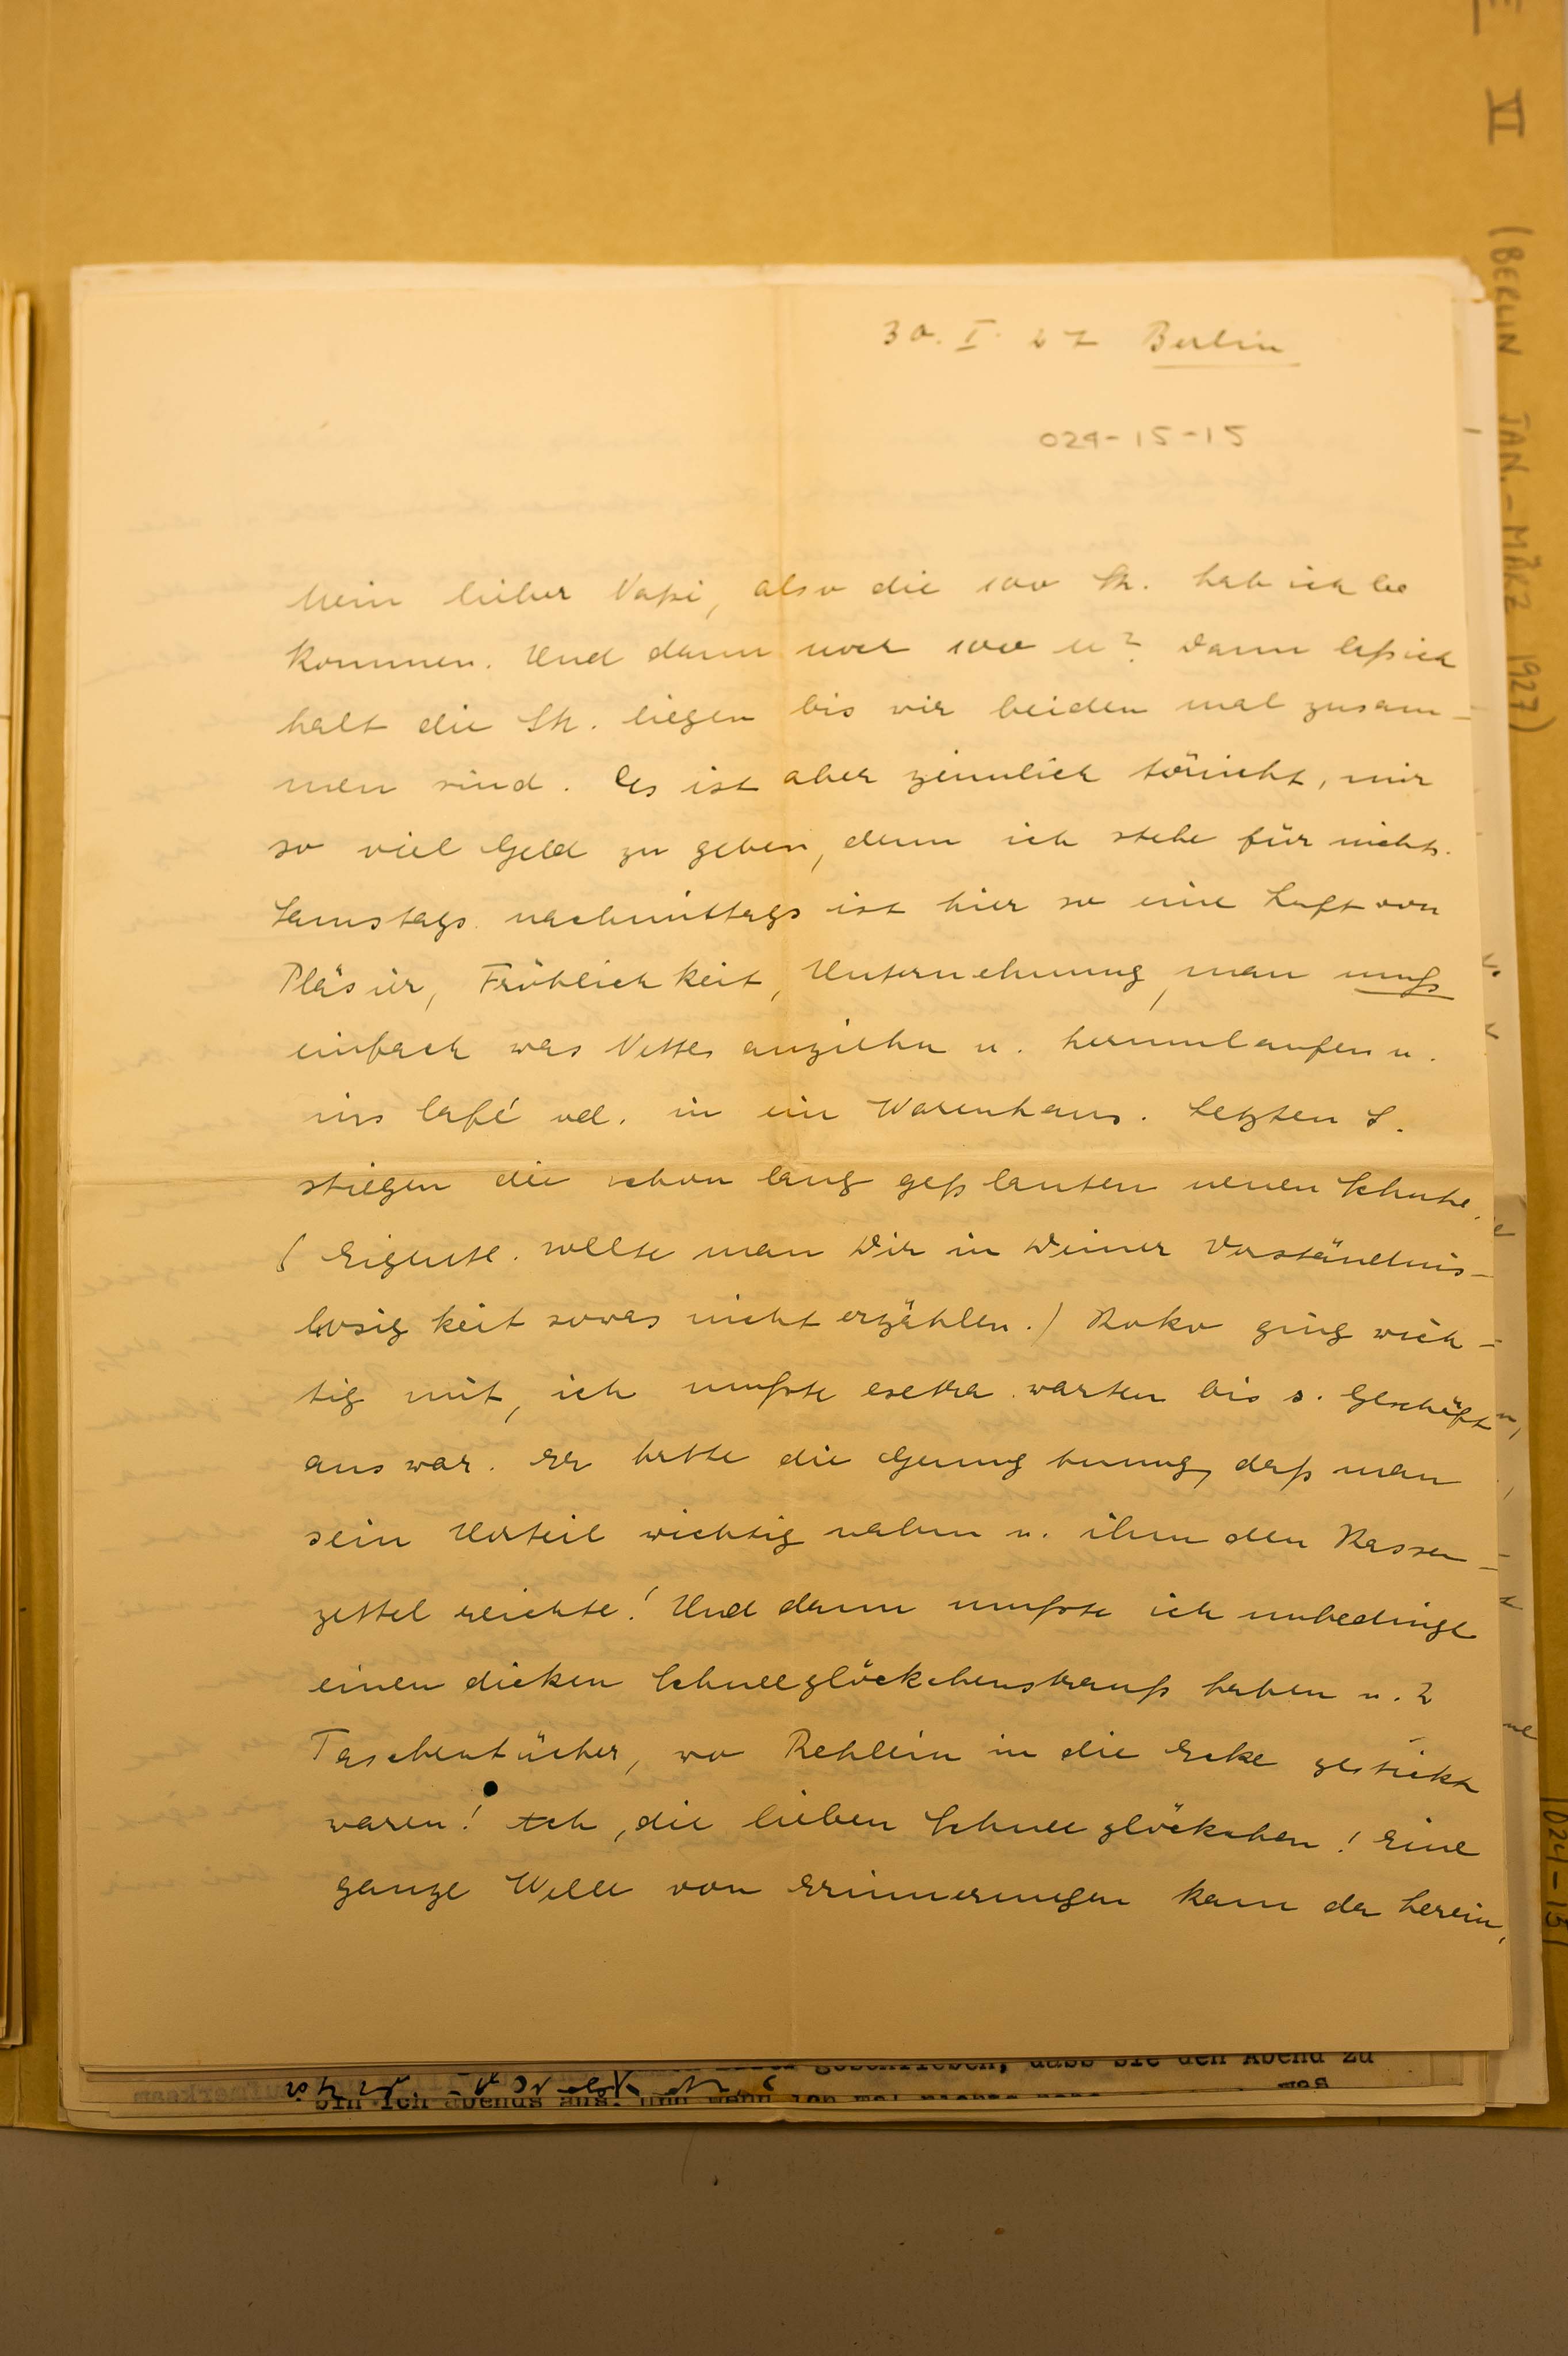 30. I. 27 Berlin
024-15-15
Mein lieber Napi, also die 100 Sh. hab ich be
kommen. Und dann noch 100 M? Dann laß ich
halt die Sh. liegen bis wir beiden mal zusam-
men sind. Es ist aber ziemlich töricht, mir
so viel Geld zu geben, denn ich stehe für nichts.
Samstags nachmittags ist hier so eine Luft von
Pläsier, Fröhlichkeit, Unternehmung, man muß
einfach was Nettes anziehn u. herumlaufen u.
ins Café od. in ein Warenhaus. Letzten S.
stiegen die schon lang geplanten neuen Schuhe.
(Eigentl. sollte man Dir in Deiner Verständnis-
losigkeit sowas nicht erzählen.) Roko ging wich-
tig mit, ich mußte extra warten bis s. Geschäft
aus war. Er hatte die Genugtuung, daß man
sein Urteil wichtig nahm u. ihm den Kassen-
zettel reichte! Und dann mußte ich unbedingt
einen dicken Schneeglöckchenstrauß haben u. 2
Taschentücher, wo Rehlein in die Ecke gestickt
waren! Ach, die lieben Schneeglöckchen! Eine
ganze Welle von Erinnerungen kam da herein,
VI (BERLIN JAN.-MÄRZ 1927)
geschrieben, dass sie den Abend zu
bin ich abends aus. und wenn ich mal nichts
was
024-15